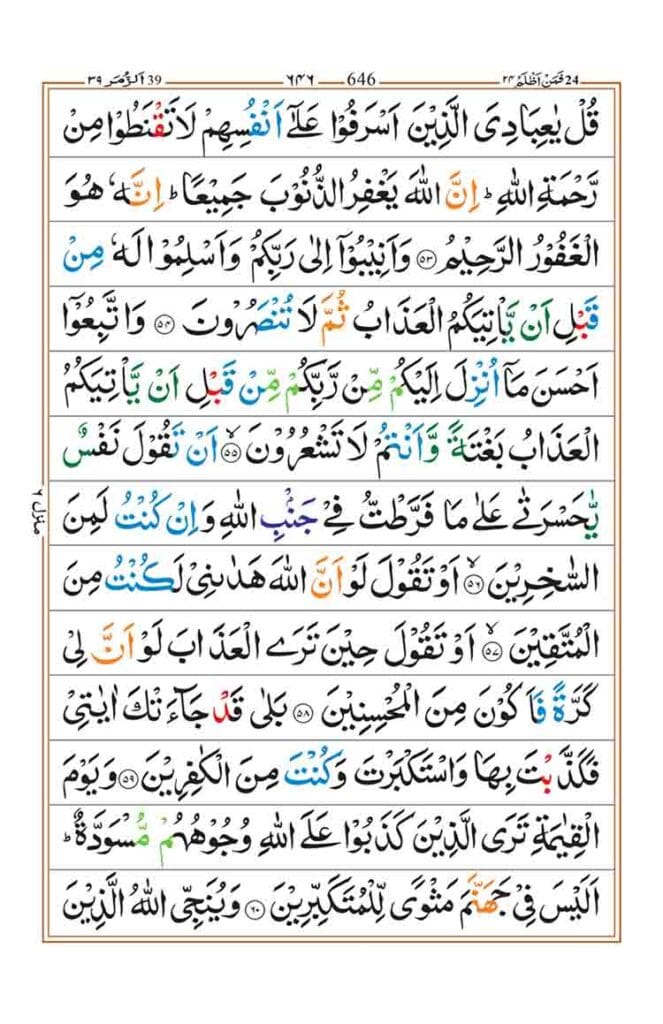 24 فَمَنْ اَظْلَمُ ٢٤ 646 ٦٤٦ 39 اَلزُّمَر ٣٩
قُلْ يٰعِبَادِىَ الَّذِيْنَ اَسْرَفُوْا عَلٰٓى اَنْفُسِهِمْ لَا تَقْنَطُوْا مِنْ
رَّحْمَةِ اللّٰهِ ؕ اِنَّ اللّٰهَ يَغْفِرُ الذُّنُوْبَ جَمِيْعًا ؕ اِنَّهٗ هُوَ
الْغَفُوْرُ الرَّحِيْمُ ﴿٥٣﴾ وَاَنِيْبُوْٓا اِلٰى رَبِّكُمْ وَاَسْلِمُوْا لَهٗ مِنْ
قَبْلِ اَنْ يَّاْتِيَكُمُ الْعَذَابُ ثُمَّ لَا تُنْصَرُوْنَ ﴿٥٤﴾ وَاتَّبِعُوْٓا
اَحْسَنَ مَآ اُنْزِلَ اِلَيْكُمْ مِّنْ رَّبِّكُمْ مِّنْ قَبْلِ اَنْ يَّاْتِيَكُمُ
الْعَذَابُ بَغْتَةً وَّاَنْتُمْ لَا تَشْعُرُوْنَ ۙ﴿٥٥﴾ اَنْ تَقُوْلَ نَفْسٌ
يّٰحَسْرَتٰى عَلٰى مَا فَرَّطْتُّ فِىْ جَنْۢبِ اللّٰهِ وَاِنْ كُنْتُ لَمِنَ
السّٰخِرِيْنَ ۙ﴿٥٦﴾ اَوْ تَقُوْلَ لَوْ اَنَّ اللّٰهَ هَدٰٮنِىْ لَكُنْتُ مِنَ
الْمُتَّقِيْنَ ۙ﴿٥٧﴾ اَوْ تَقُوْلَ حِيْنَ تَرَى الْعَذَابَ لَوْ اَنَّ لِىْ
كَرَّةً فَاَكُوْنَ مِنَ الْمُحْسِنِيْنَ ﴿٥٨﴾ بَلٰى قَدْ جَآءَتْكَ اٰيٰتِىْ
فَكَذَّبْتَ بِهَا وَاسْتَكْبَرْتَ وَكُنْتَ مِنَ الْكٰفِرِيْنَ ﴿٥٩﴾ وَيَوْمَ
الْقِيٰمَةِ تَرَى الَّذِيْنَ كَذَبُوْا عَلَى اللّٰهِ وُجُوْهُهُمْ مُّسْوَدَّةٌ ؕ
اَلَيْسَ فِىْ جَهَنَّمَ مَثْوًى لِّلْمُتَكَبِّرِيْنَ ﴿٦٠﴾ وَيُنَجِّى اللّٰهُ الَّذِيْنَ
منزل ٦